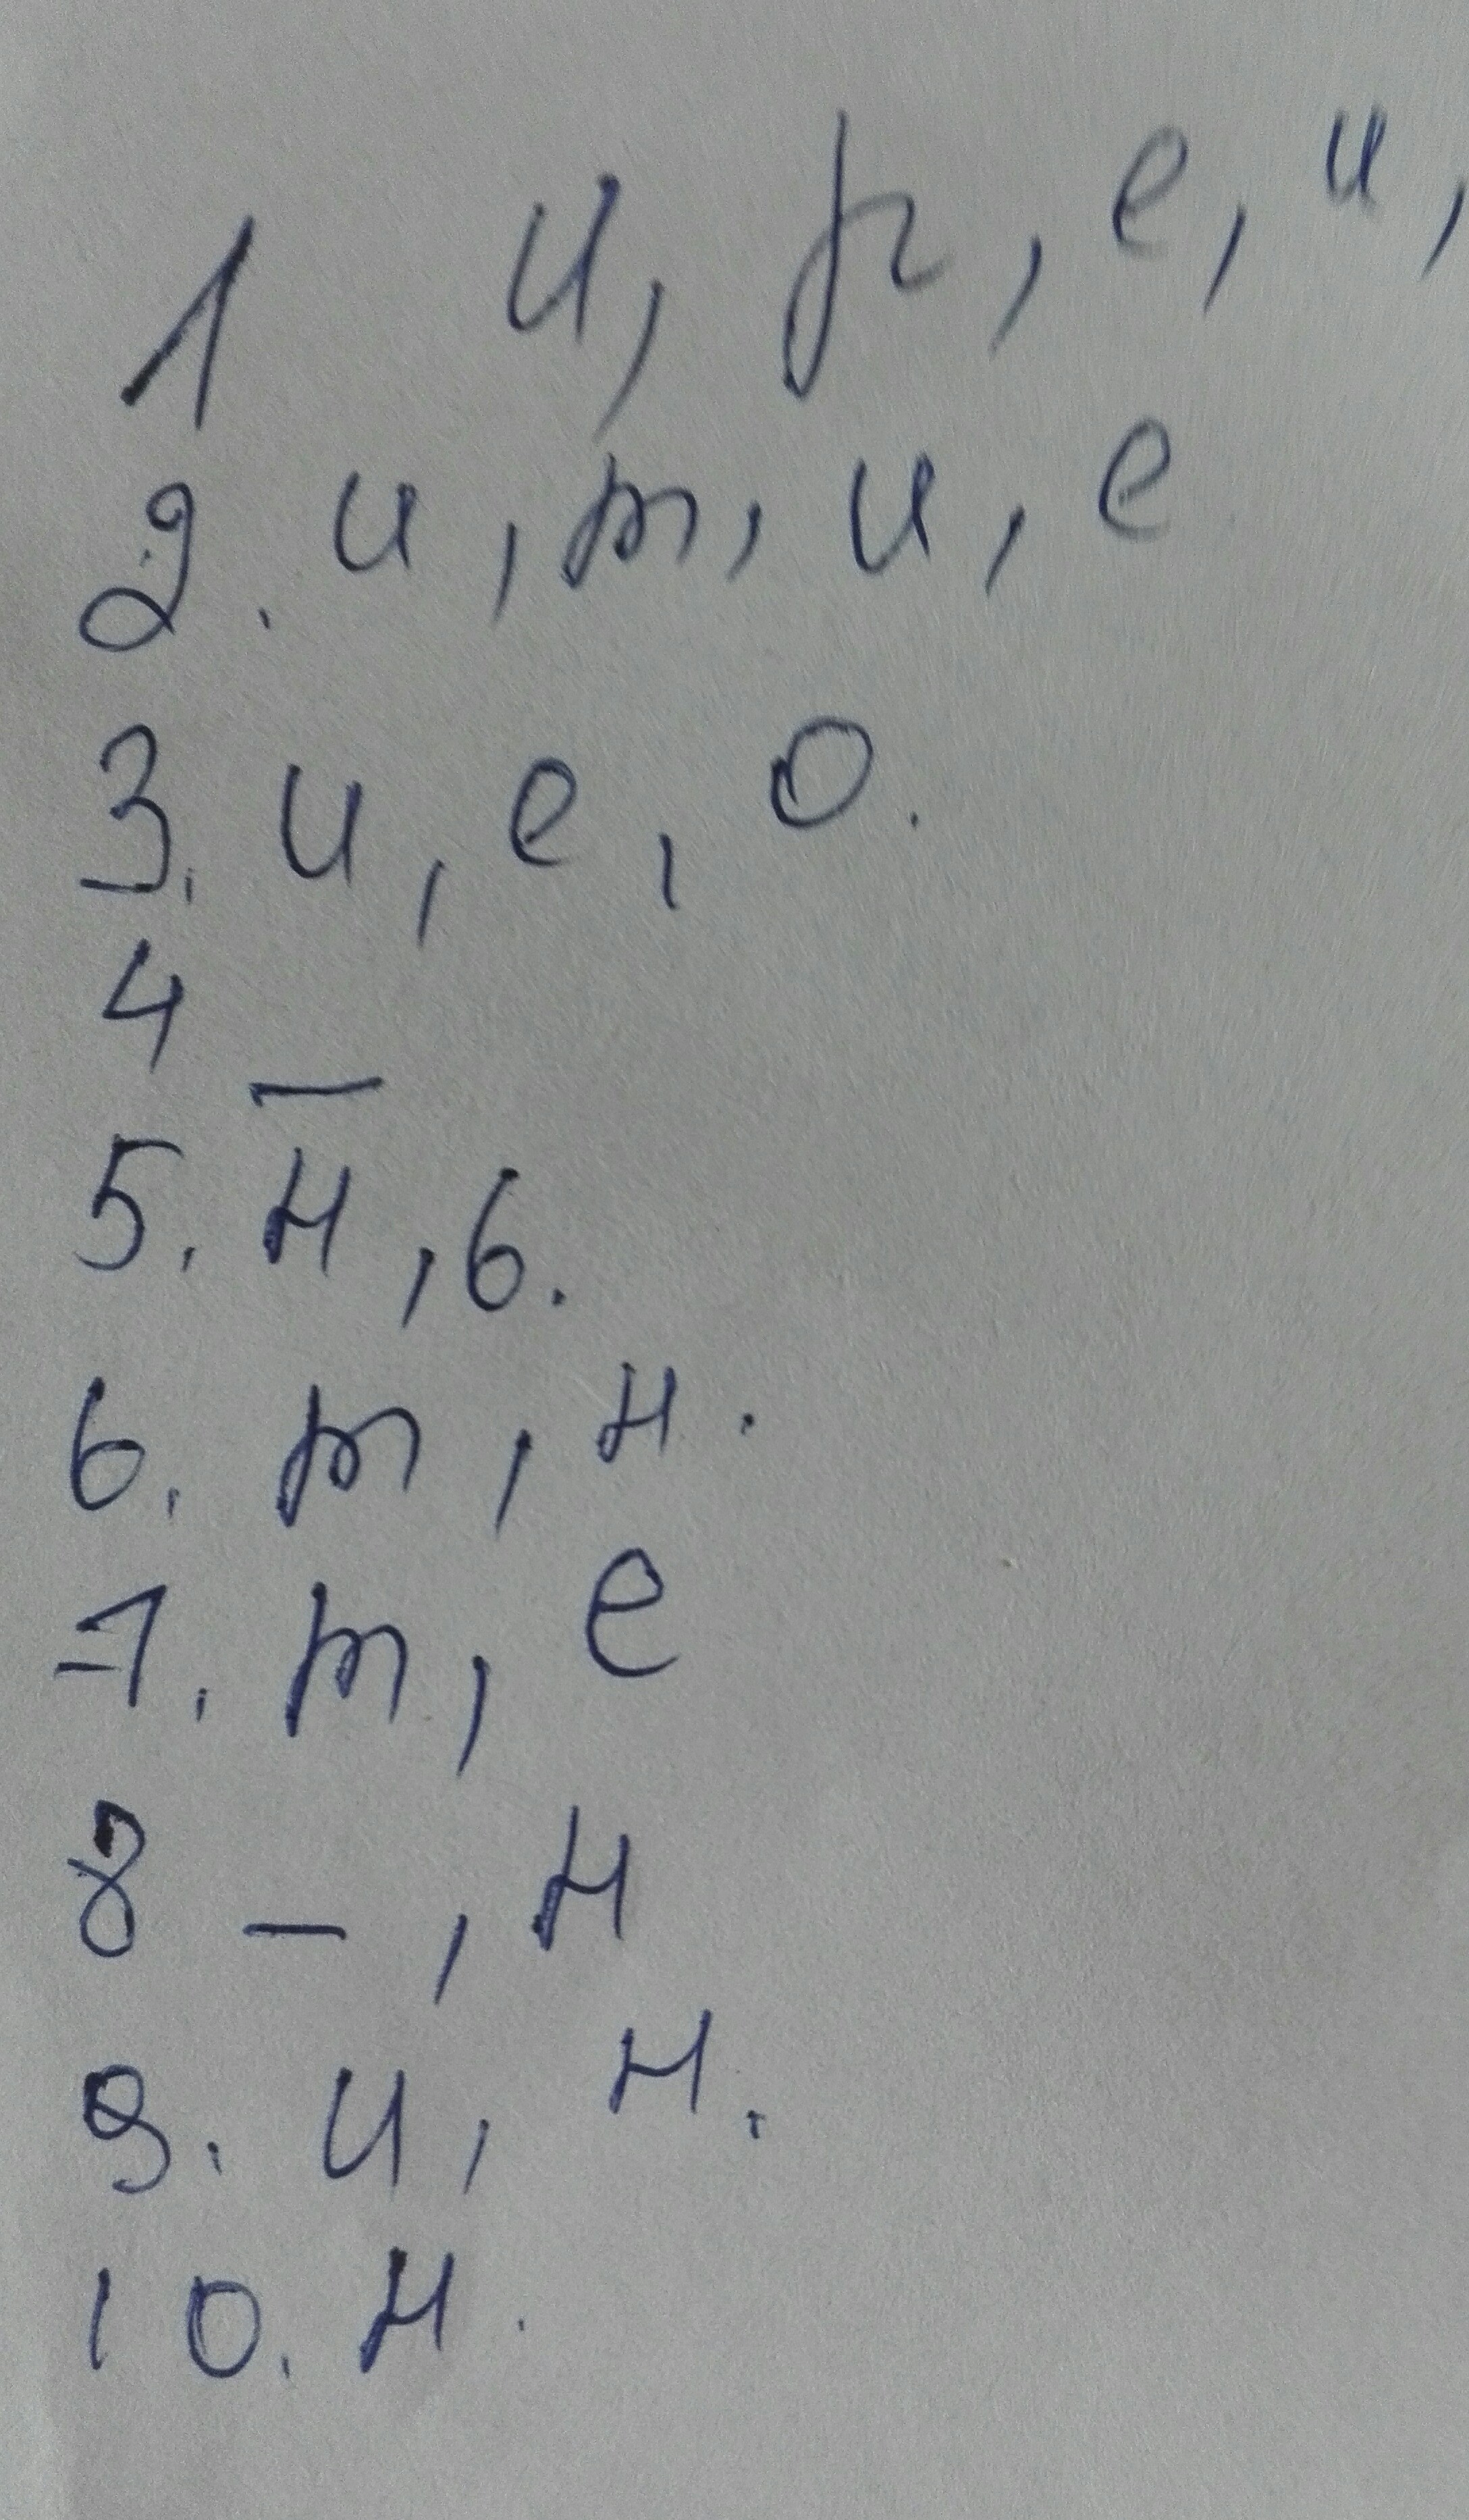 1 и, р, е, и,
2. и, т, и, е
3. и, е, о.
4 —
5. н, б.
6. т, н.
7. т, е
8 —, н
9. и, н.
10. н.